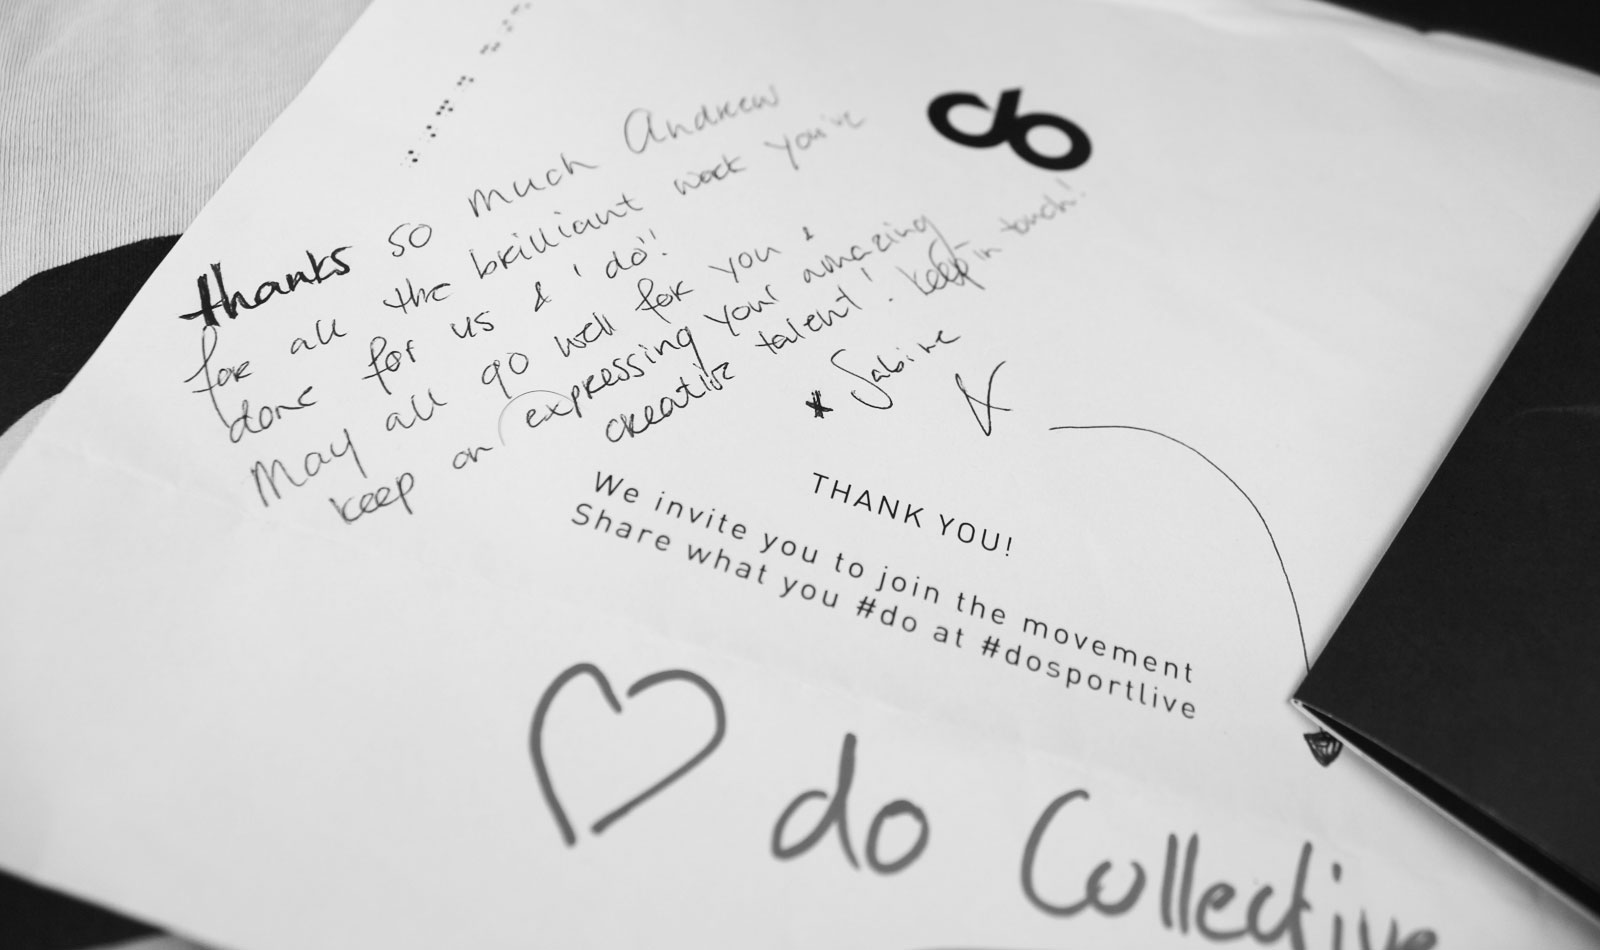 do
thanks so much Andrew
for all the brilliant work you've
done for us & 'do'!
May all go well for you &
keep on expressing your amazing
creative talent! . keep in touch!
* Sabine
x
THANK YOU!
We invite you to join the movement
Share what you #do at #dosportlive
do Collective